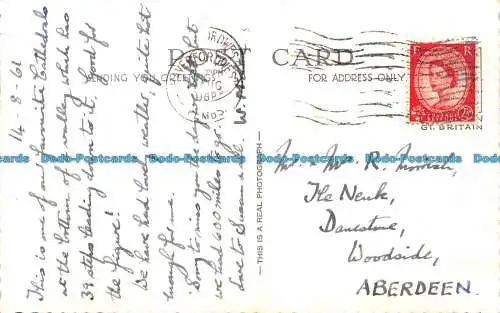 POST CARD
SENDING YOU GREETINGS
FOR ADDRESS ONLY
HAVERFORDWEST
AUG
1961
E R
GT. BRITAIN
THIS IS A REAL PHOTOGRAPH
14-8-61
This is one of our favourite Cathedrals
at the bottom of a valley which has
39 steps leading down to it, good for
the figure!
We have had lovely weather, quite hot
enough for me.
Sorry to miss you the day we left but
we had 600 miles to go.
Love to Susan &
Mr. & Mrs. R.
The Neuk,
Danestone,
Woodside,
ABERDEEN.
Dodo-Postcards Dodo-Postcards Dodo-Postcards Dodo-Postcards